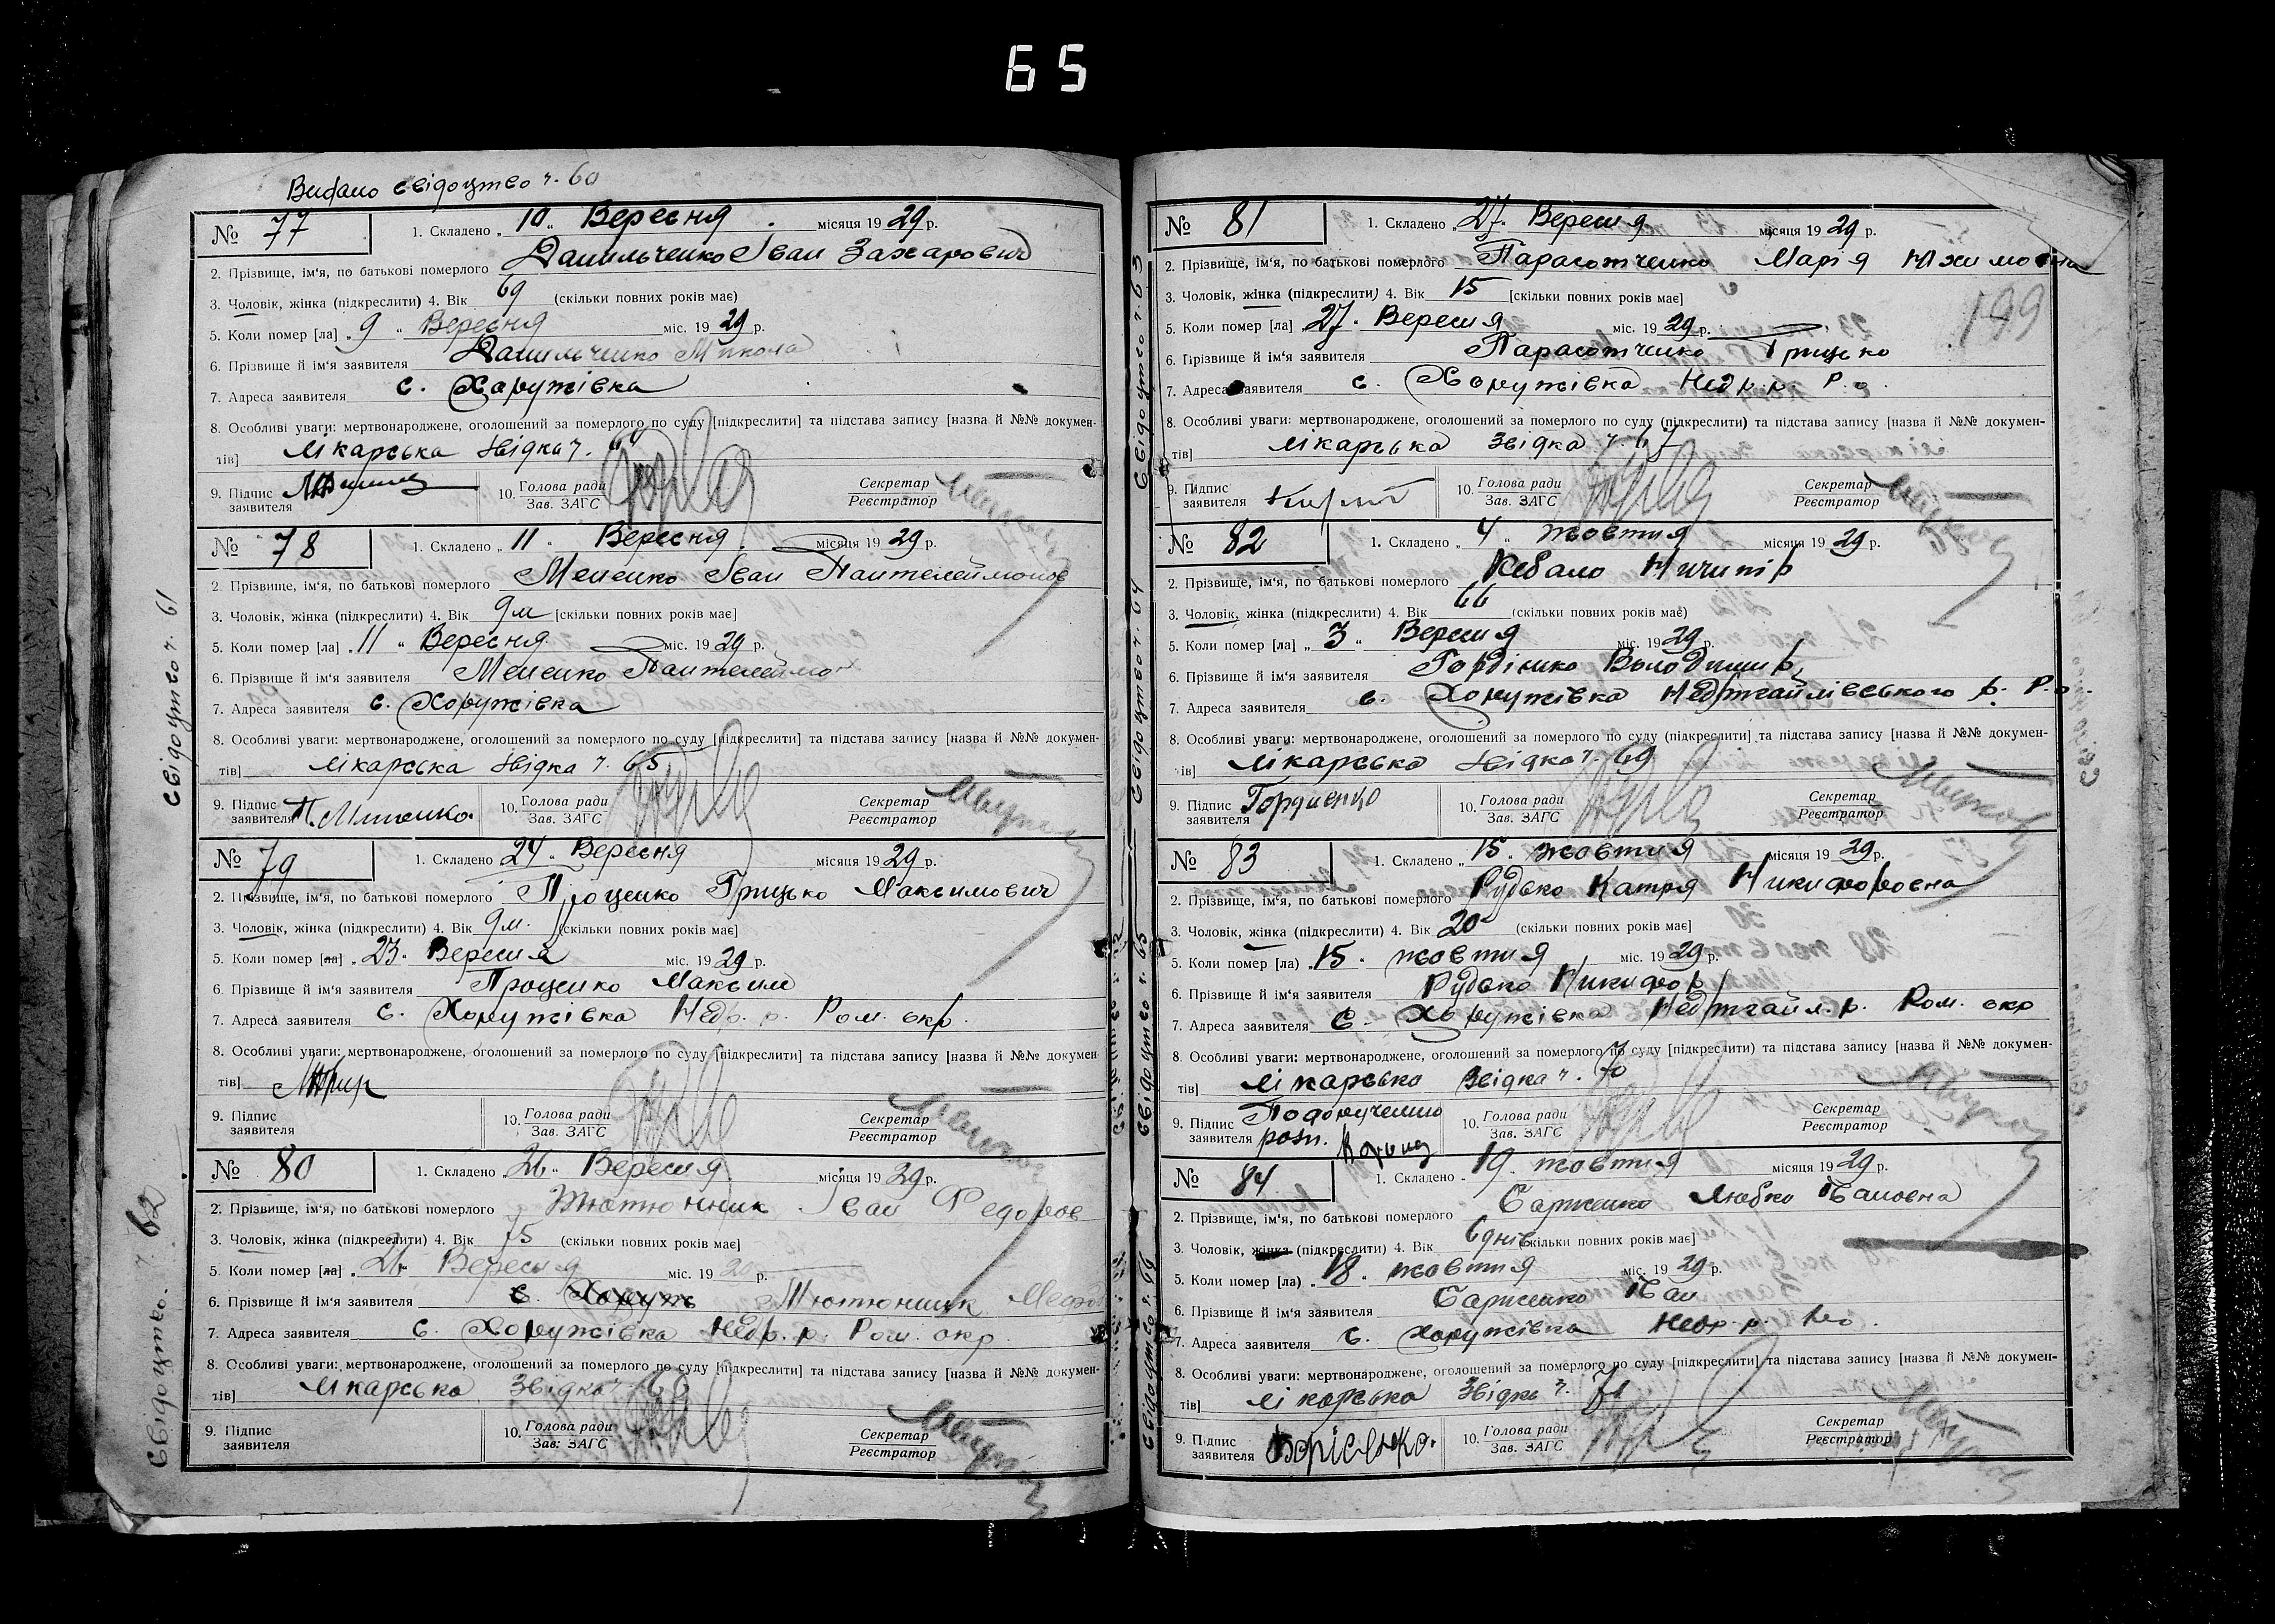 65
Видано свідоцтво ч. 60
№ 77 1. Складено „10“ Вересня місяця 1929 р.
2. Прізвище, ім'я, по батькові померлого Данильченко Іван Захарович
3. Чоловік, жінка (підкреслити) 4. Вік 69 (скільки повних років має)
5. Коли помер [ла] „9“ Вересня міс. 1929 р.
6. Прізвище й ім'я заявителя Данильченко Микола
7. Адреса заявителя с. Хоружівка
8. Особливі уваги: мертвонароджене, оголошений за померлого по суду [підкреслити] та підстава запису [назва й №№ докумен-
тів] лікарська звідка ч. 64
9. Підпис заявителя 10. Голова ради Зав. ЗАГС Секретар Реєстратор
свідоцтво ч. 61
№ 78 1. Складено „11“ Вересня місяця 1929 р.
2. Прізвище, ім'я, по батькові померлого Меченко Іван Пантелеймонов
3. Чоловік, жінка (підкреслити) 4. Вік 9м [скільки повних років має]
5. Коли помер [ла] „11“ Вересня міс. 1929 р.
6. Прізвище й ім'я заявителя Меченко Пантелеймон
7. Адреса заявителя с. Хоружівка
8. Особливі уваги: мертвонароджене, оголошений за померлого по суду [підкреслити] та підстава запису [назва й №№ докумен-
тів] лікарська звідка ч. 65
9. Підпис заявителя 10. Голова ради Зав. ЗАГС Секретар Реєстратор
№ 79 1. Складено 24 Вересня місяця 1929 р.
2. Прізвище, ім'я, по батькові померлого Проценко Грицько Максимович
3. Чоловік, жінка (підкреслити) 4. Вік 9м. (скільки повних років має]
5. Коли помер [ла] „23“ Вересня міс. 1929 р.
6. Прізвище й ім'я заявителя Проценко Максим
7. Адреса заявителя с. Хоружівка Недр. р. Ром. окр.
8. Особливі уваги: мертвонароджене, оголошений за померлого по суду [підкреслити] та підстава запису [назва й №№ докумен-
тів]
9. Підпис заявителя 10. Голова ради Зав. ЗАГС Секретар Реєстратор
свідоцтво ч. 62
№ 80 1. Складено „26“ Вересня місяця 1929 р.
2. Прізвище, ім'я, по батькові померлого Тютюнник Іван Федоров
3. Чоловік, жінка (підкреслити) 4. Вік 75 (скільки повних років має]
5. Коли помер [ла] „26“ Вересня міс. 1929 р.
6. Прізвище й ім'я заявителя с. Хоруж Тютюнник
7. Адреса заявителя с. Хоружівка Недр. р. Ром. окр.
8. Особливі уваги: мертвонароджене, оголошений за померлого по суду [підкреслити] та підстава запису [назва й №№ докумен-
тів] лікарська звідка ч. 66
9. Підпис заявителя 10. Голова ради Зав. ЗАГС Секретар Реєстратор
свідоцтво ч. 63
№ 81 1. Складено „27“ Вересня місяця 1929 р.
2. Прізвище, ім'я, по батькові померлого Парасотченко Марія Юхимовна
3. Чоловік, жінка (підкреслити) 4. Вік 15 [скільки повних років має]
5. Коли помер [ла] „27“ Вересня міс. 1929 р.
199
6. Прізвище й ім'я заявителя Парасотченко Грицько
7. Адреса заявителя с. Хоружівка Недр. р. Р. о.
8. Особливі уваги: мертвонароджене, оголошений за померлого по суду (підкреслити) та підстава запису [назва й №№ докумен-
тів] лікарська звідка ч. 67
9. Підпис заявителя 10. Голова ради Зав. ЗАГС Секретар Реєстратор
свідоцтво ч. 64
№ 82 1. Складено „4“ жовтня місяця 1929 р.
2. Прізвище, ім'я, по батькові померлого Кебало Ничипір
3. Чоловік, жінка (підкреслити) 4. Вік 66 (скільки повних років має)
5. Коли помер [ла] „3“ Вересня міс. 1929 р.
6. Прізвище й ім'я заявителя Гордієнко Володимир
7. Адреса заявителя с. Хоружівка Недригайлівського р. Р. о.
8. Особливі уваги: мертвонароджене, оголошений за померлого по суду (підкреслити] та підстава запису [назва й №№ докумен-
тів] лікарська звідка ч. 69
9. Підпис заявителя Гордиенко 10. Голова ради Зав. ЗАГС Секретар Реєстратор
свідоцтво ч. 65
№ 83 1. Складено „15“ жовтня місяця 1929 р.
2. Прізвище, ім'я, по батькові померлого Рудько Катря Никифоровна
3. Чоловік, жінка (підкреслити) 4. Вік 20 (скільки повних років має]
5. Коли помер [ла) „15“ жовтня міс. 1929 р.
6. Прізвище й ім'я заявителя Рудько Никифор
7. Адреса заявителя с. Хоружівка Недригайл. р. Ром. окр
8. Особливі уваги: мертвонароджене, оголошений за померлого по суду [підкреслити) та підстава запису [назва й №№ докумен-
тів] лікарська звідка ч. 70
9. Підпис заявителя По доручению розп. 10. Голова ради Зав. ЗАГС Секретар Реєстратор
свідоцтво ч. 66
№ 84 1. Складено „19“ жовтня місяця 1929 р.
2. Прізвище, ім'я, по батькові померлого Барисенко Любко Івановна
3. Чоловік, жінка (підкреслити) 4. Вік 6 днів (скільки повних років має]
5. Коли помер [ла) „18“ жовтня міс. 1929 р.
6. Прізвище й ім'я заявителя Барисенко Іван
7. Адреса заявителя с. Хоружівка Недр. р.
8. Особливі уваги: мертвонароджене, оголошений за померлого по суду [підкреслити] та підстава запису [назва й №№ докумен-
тів] лікарська звідка ч. 71
9. Підпис заявителя Борісенко. 10. Голова ради Зав. ЗАГС Секретар Реєстратор